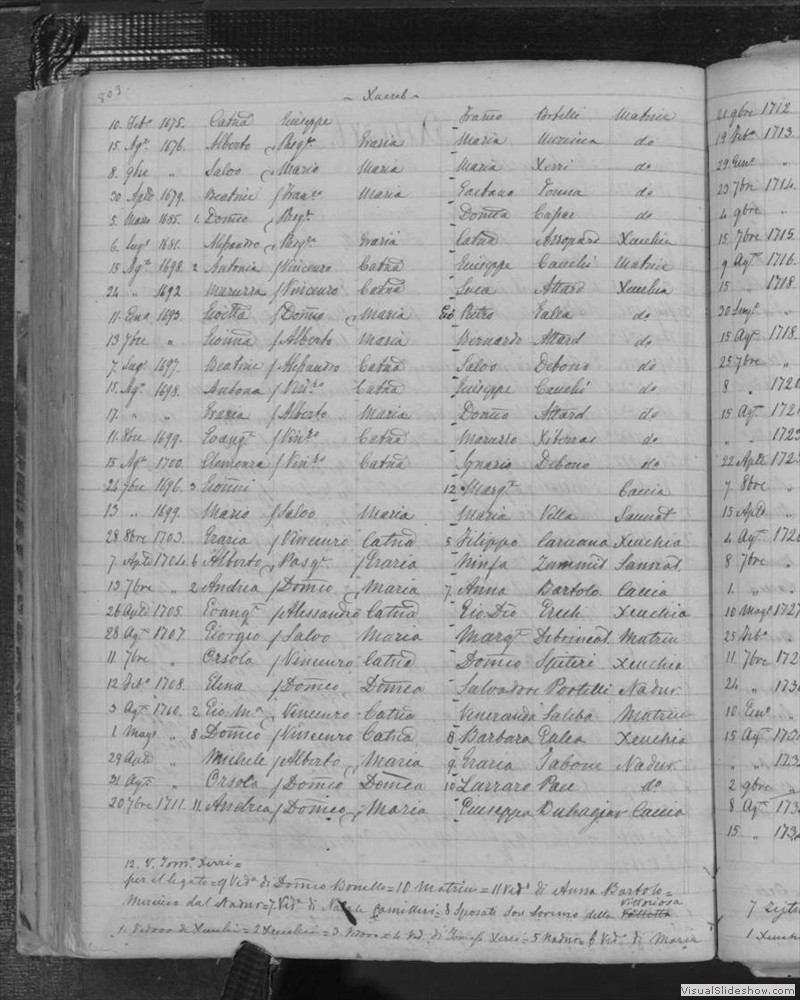 803
- Xuereb -
10. Feb.º 1675. Catnã Giuseppe Franco Botelli Matrice
15. Ag.º 1676. Alberto Pasq.º Grazia Maria Mercieca do
8. 9bre „ Salvo Mario Maria Maria Xerri do
30 Aple 1679. Beatrice Franc.º Maria Gaetano Fonna do
5. Marzo 1685. 1. Domco Pasq.º Domca Capar do
6. Lug.º 1686. Alessandro Pasq.º Grazia Catnã Azzopardo Xeuchia
15 Ag.º 1698. 2 Antonia Vincenzo Catnã Giuseppe Cauchi Matrice
24 „ 1692 Maruzza Vincenzo Catnã Luca Attard Xeuchia
11. Ena 1693. Domco Maria Gio Pietro Galea do
13 7bre „ Gionna Alberto Maria Bernardo Attard do
7. Lug.º 1697. Beatrice Alessandro Catnã Salvo Debono do
15. Ag.º 1698. Antona Vin.zo Catnã Giuseppe Cauchi do
17. „ „ Grazia Alberto Maria Domco Attard do
11. 8bre 1699. Evang.ª Vin.zo Catnã Maruzzo Xiberras do
15. Ag.º 1700. Clemenza Vin.zo Catnã Ignazio Debono do
24 7bre 1696. 3 Gionni 12 Marg.ª Caccia
13 „ 1699. Mario Salvo Maria Maria Vella Sannat
28 8bre 1703. Grazia Vincenzo Catnã 5 Filippo Caruana Xeuchia
7. Aple 1704. 6 Alberto Pasq.º Grazia Ninfa Zammit Sannat
13 7bre „ 2 Andrea Domco Maria 7. Anna Bartolo Caccia
26 Aple 1705. Evang.ª Alessandro Catnã Gio Dio Grech Xeuchia
28 Ag.º 1707 Giorgio Salvo Maria Marg.ª Debrincat Matrice
11. 7bre „ Orsola Vincenzo Catnã Domco Spiteri Xeuchia
12 Feb.º 1708. Elena Domco Domca Salvadore Portelli Nadur
3 Ag.º 1710. 2 Gio. M.ª Vincenzo Catnã Veneranda Saliba Matrice
1 Mag.º „ 8 Domco Vincenzo Catnã 8 Barbara Galea Xeuchia
29 Aple „ Michele Alberto Maria 9 Grazia Tabone Nadur
31 Ag.º „ Orsola Domco Domca 10 Lazzaro Pace do
20 7bre 1711. 11 Andrea Domco Maria Giuseppa Caccia
12. V. Tom.º Xirri =
per il legato = 9 Ved.ª di Domco Bonello = 10 Matrice = 11 Ved.º di Anna Bartolo =
Mercieca dal Nadur = 7. Ved.ª di Natale Camilleri = 8 Sposati San Lorenzo della Vittoriosa
1. Vedovo de Xeuchia = 2 Xeuchia = 3. Vedovo = 4 Ved. di Xerri = 5 Nadur = 6 Ved.º di Maria
21 9bre 1712
19 Feb.º 1713.
29 Gen.º „
23 7bre 1714.
4 9bre „
15. 7bre 1715
9 Ag.º 1716.
15 „ 1718
30 Lug.º „
15 Ag.º 1718.
25 7bre „
8 „
15 Ag.º
22 Aple
7 8bre „
15 Aple „
4 Ag.º
8 7bre „
1. „ „
10 Mag.º 1727
25 Feb.º „
11. 7bre
24 „
10 Gen.º „
15 Ag.º
„ „
2 9bre „
8 Ag.º
15 „
VisualSlideshow.com